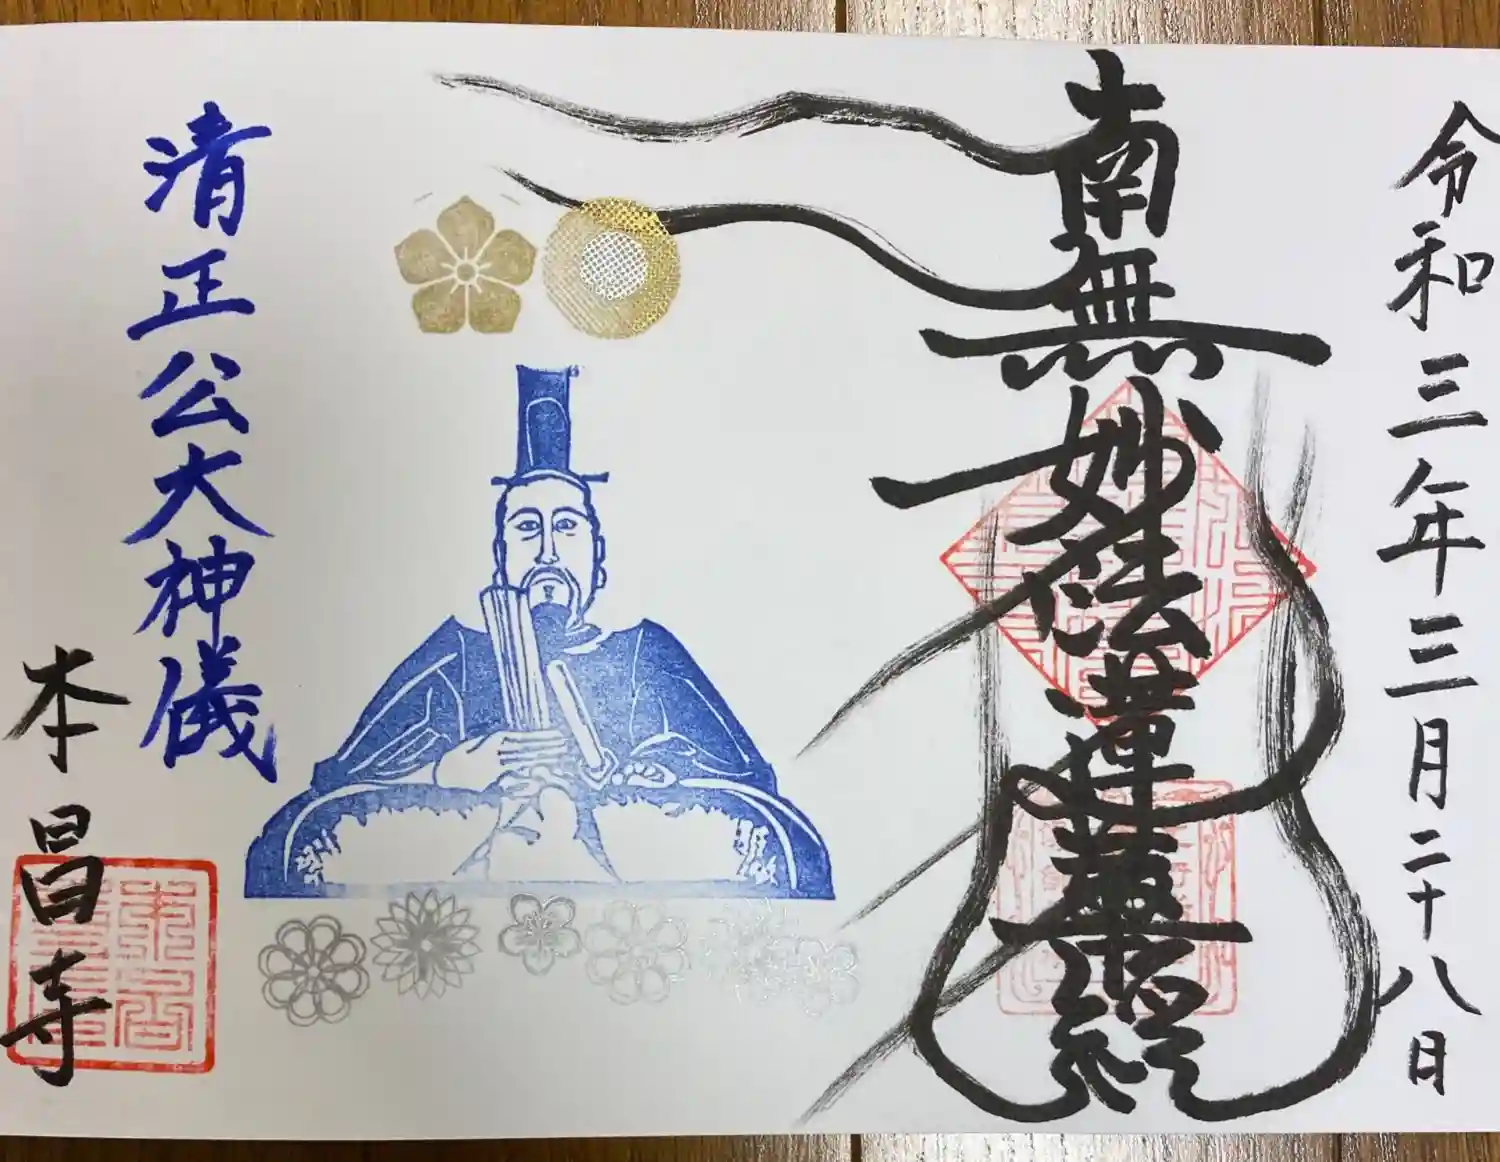 令和三年三月二十八日
南無妙法蓮華経
清正公大神儀
本昌寺